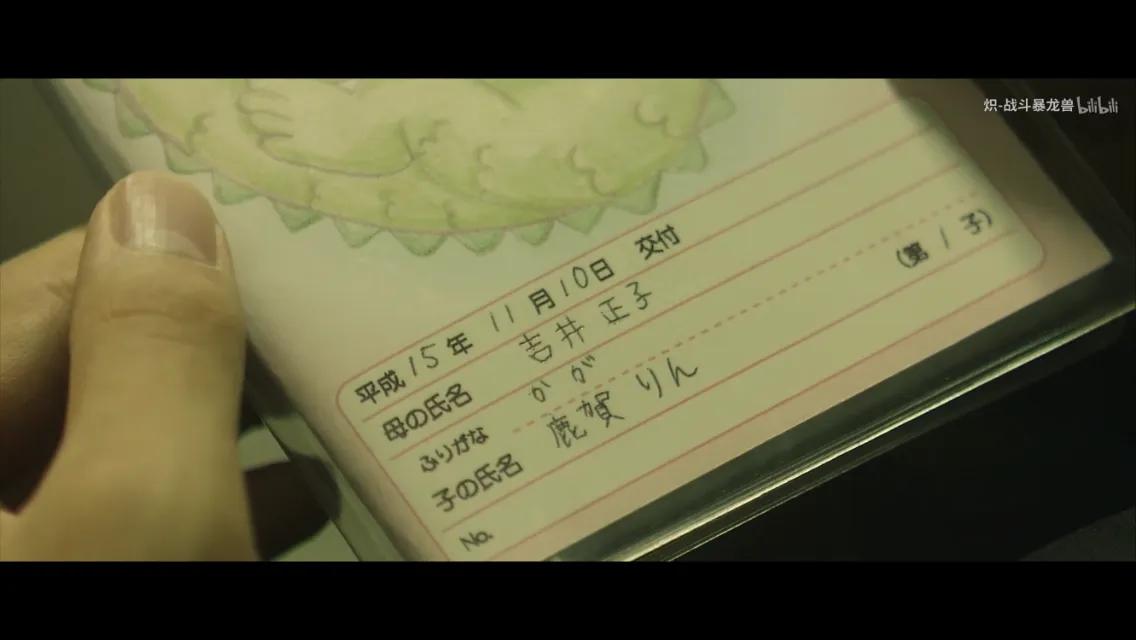 炽-战斗暴龙兽 bilibili
平成15年 11月10日 交付
母の氏名 吉井 正子
ふりがな かが
子の氏名 鹿賀 りん (第1子)
No.